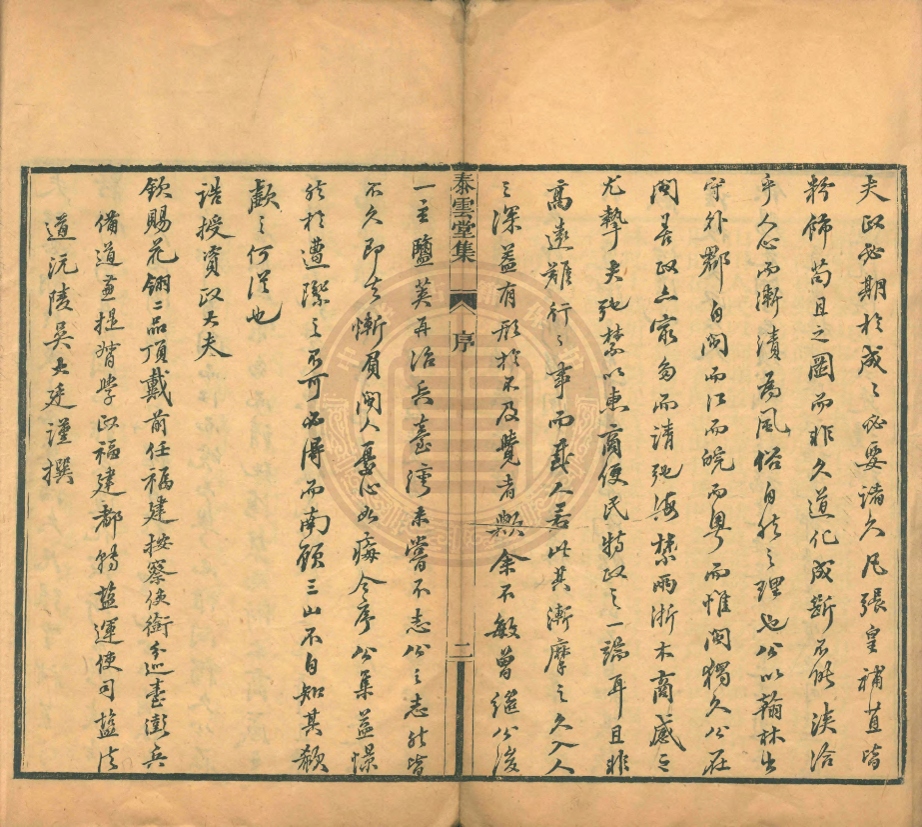 夫政必期於成之必要諸久凡張皇補苴皆
粉飾苟且之圖而非久道化成斷不能浹洽
乎人心而漸漬為風俗自然之理也公以翰林出
守外郡自閩而江而皖而粵而惟閩獨久公在
閩善政亦最多而清弛海禁兩浙木商感之
尤摯夫弛禁以惠商便民特政之一端耳且非
高遠難行之事而感人若此其漸摩之久入人
之深蓋有形於不及覺者歟余不敏曾繼公後
泰雲堂集
序
二
一主鹽筴再治兵臺灣未嘗不志公之志然皆
不久即去慚負閩人憂心如痗今序公集益憬
然於遭際之不可必得而南顧三山不自知其欷
歔之何從也
誥授資政大夫
欽賜花翎二品頂戴前任福建按察使銜分巡臺澎兵
備道兼提督學政福建都轉鹽運使司鹽法
道沅陵吳大廷謹撰